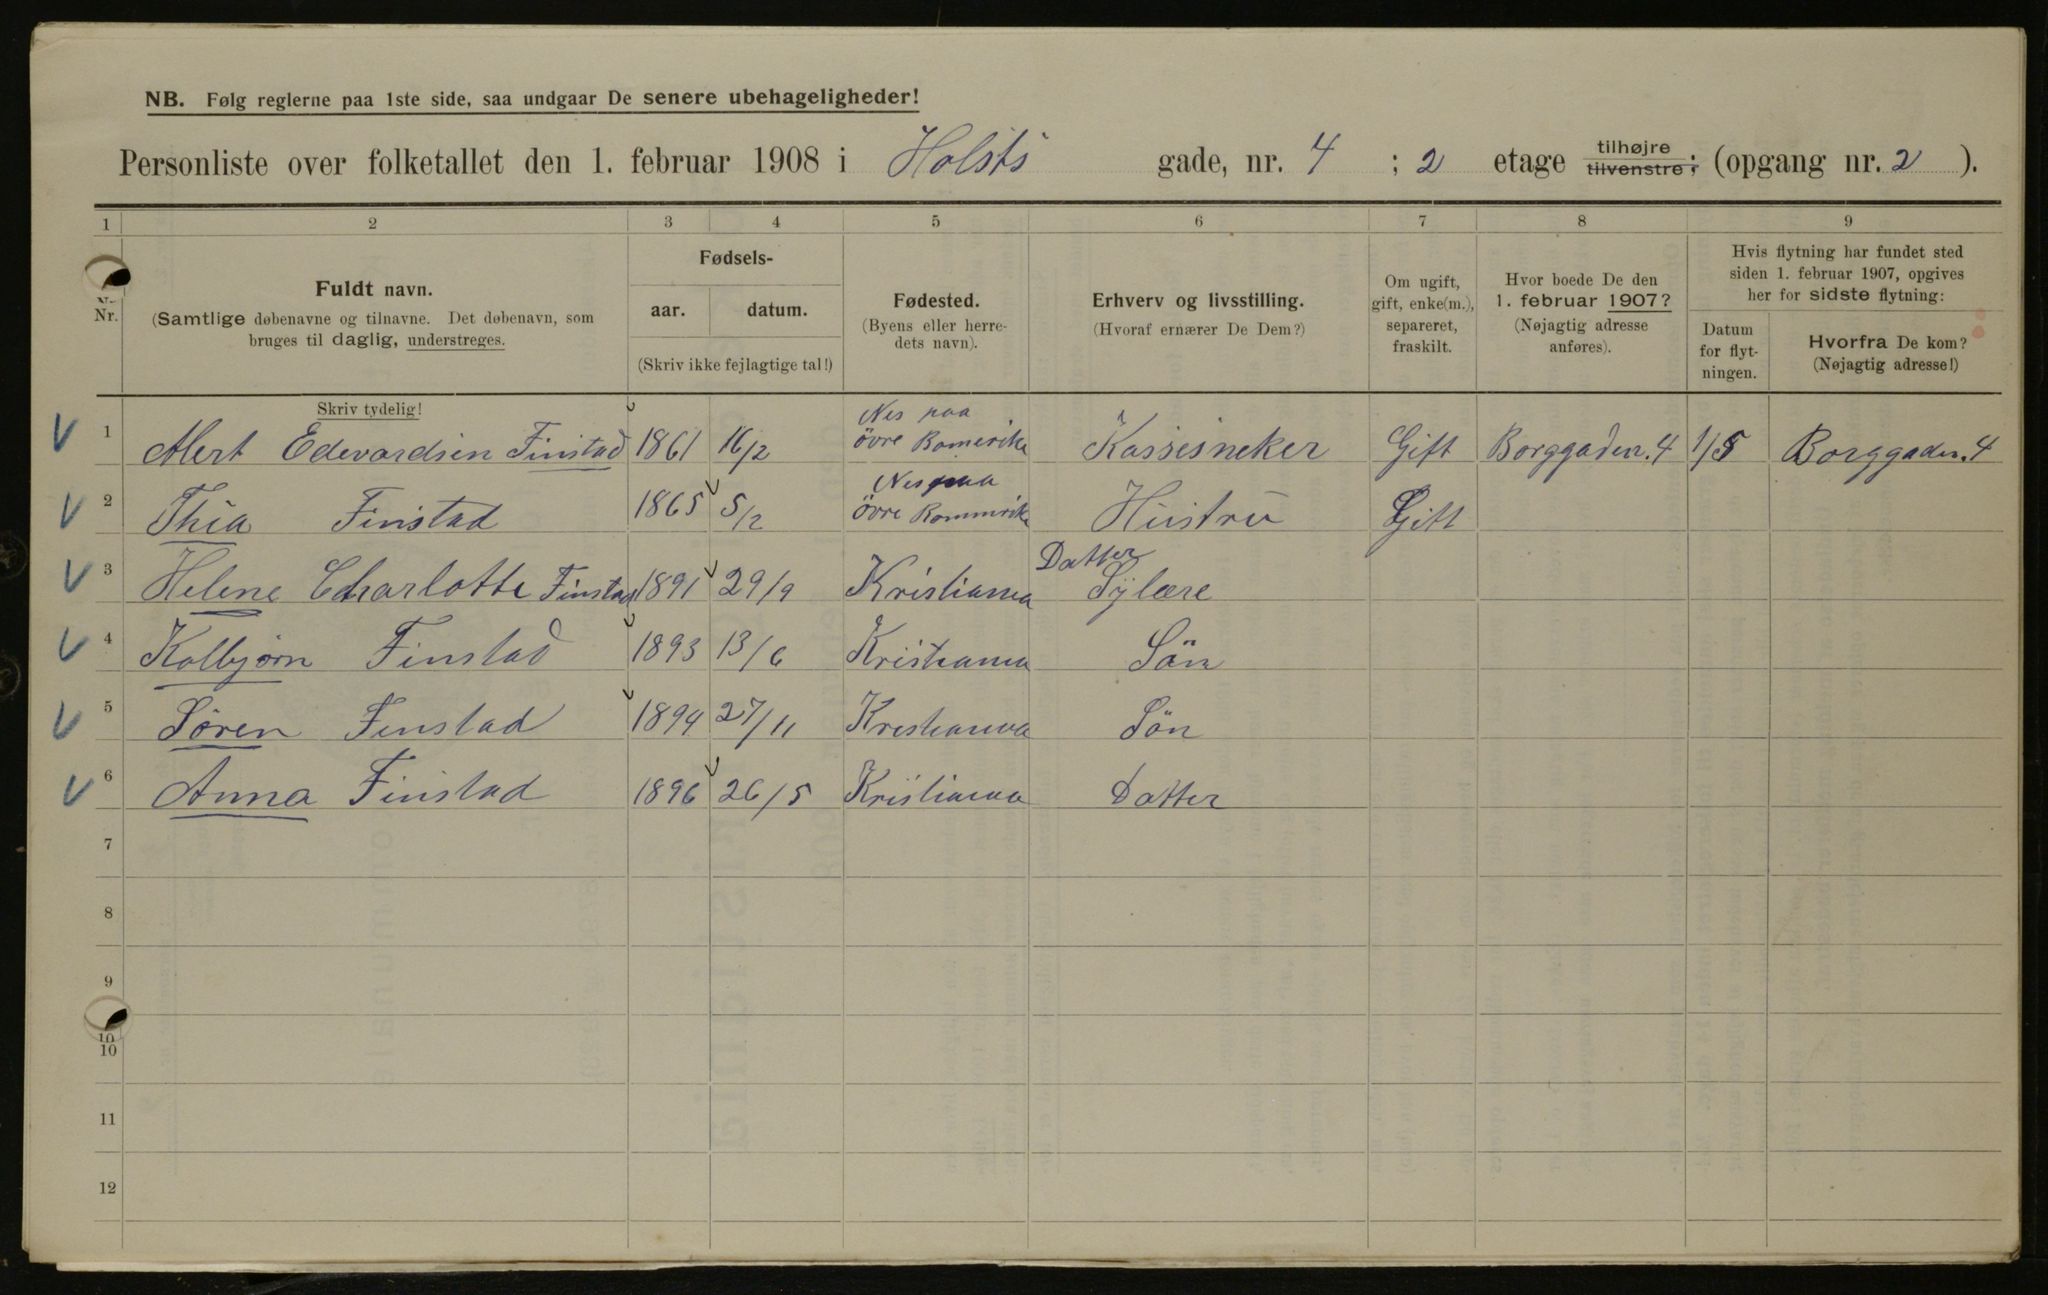 NB. Følg reglerne paa 1ste side, saa undgaar De senere ubehageligheder!
Personliste over folketallet den 1. februar 1908 i Holsts gade, nr. 4 ; 2 etage tilhøjre tilvenstre; (opgang nr. 2 ).
1 2 3 4 5 6 7 8 9
Nr.
Fuldt navn.
(Samtlige døbenavne og tilnavne. Det døbenavn, som
bruges til daglig, understreges.
Skriv tydelig!
Fødsels-
aar. datum.
(Skriv ikke fejlagtige tal!)
Fødested.
(Byens eller herre-
dets navn).
Erhverv og livsstilling.
(Hvoraf ernærer De Dem?)
Om ugift,
gift, enke(m.),
separeret,
fraskilt.
Hvor boede De den
1. februar 1907?
(Nøjagtig adresse
anføres).
Hvis flytning har fundet sted
siden 1. februar 1907, opgives
her for sidste flytning:
Datum
for flyt-
ningen.
Hvorfra De kom?
(Nøjagtig adresse!)
1 Alert Edevardsen Finstad 1861 16/2 Nes paa øvre Romerike Kassesneker Gift Borggaden. 4 1/5 Borggaden. 4
2 Thia Finstad 1865 5/2 Nes paa øvre Rommerike Hustru Gift
3 Helene Charlotte Finstad 1891 29/9 Kristiania Datter Sylære
4 Kolbjørn Finstad 1893 13/6 Kristiania Sön
5 Søren Finstad 1894 27/11 Kristiania Sön
6 Anna Finstad 1896 26/5 Kristiania Datter
7
8
9
10
10
11
12